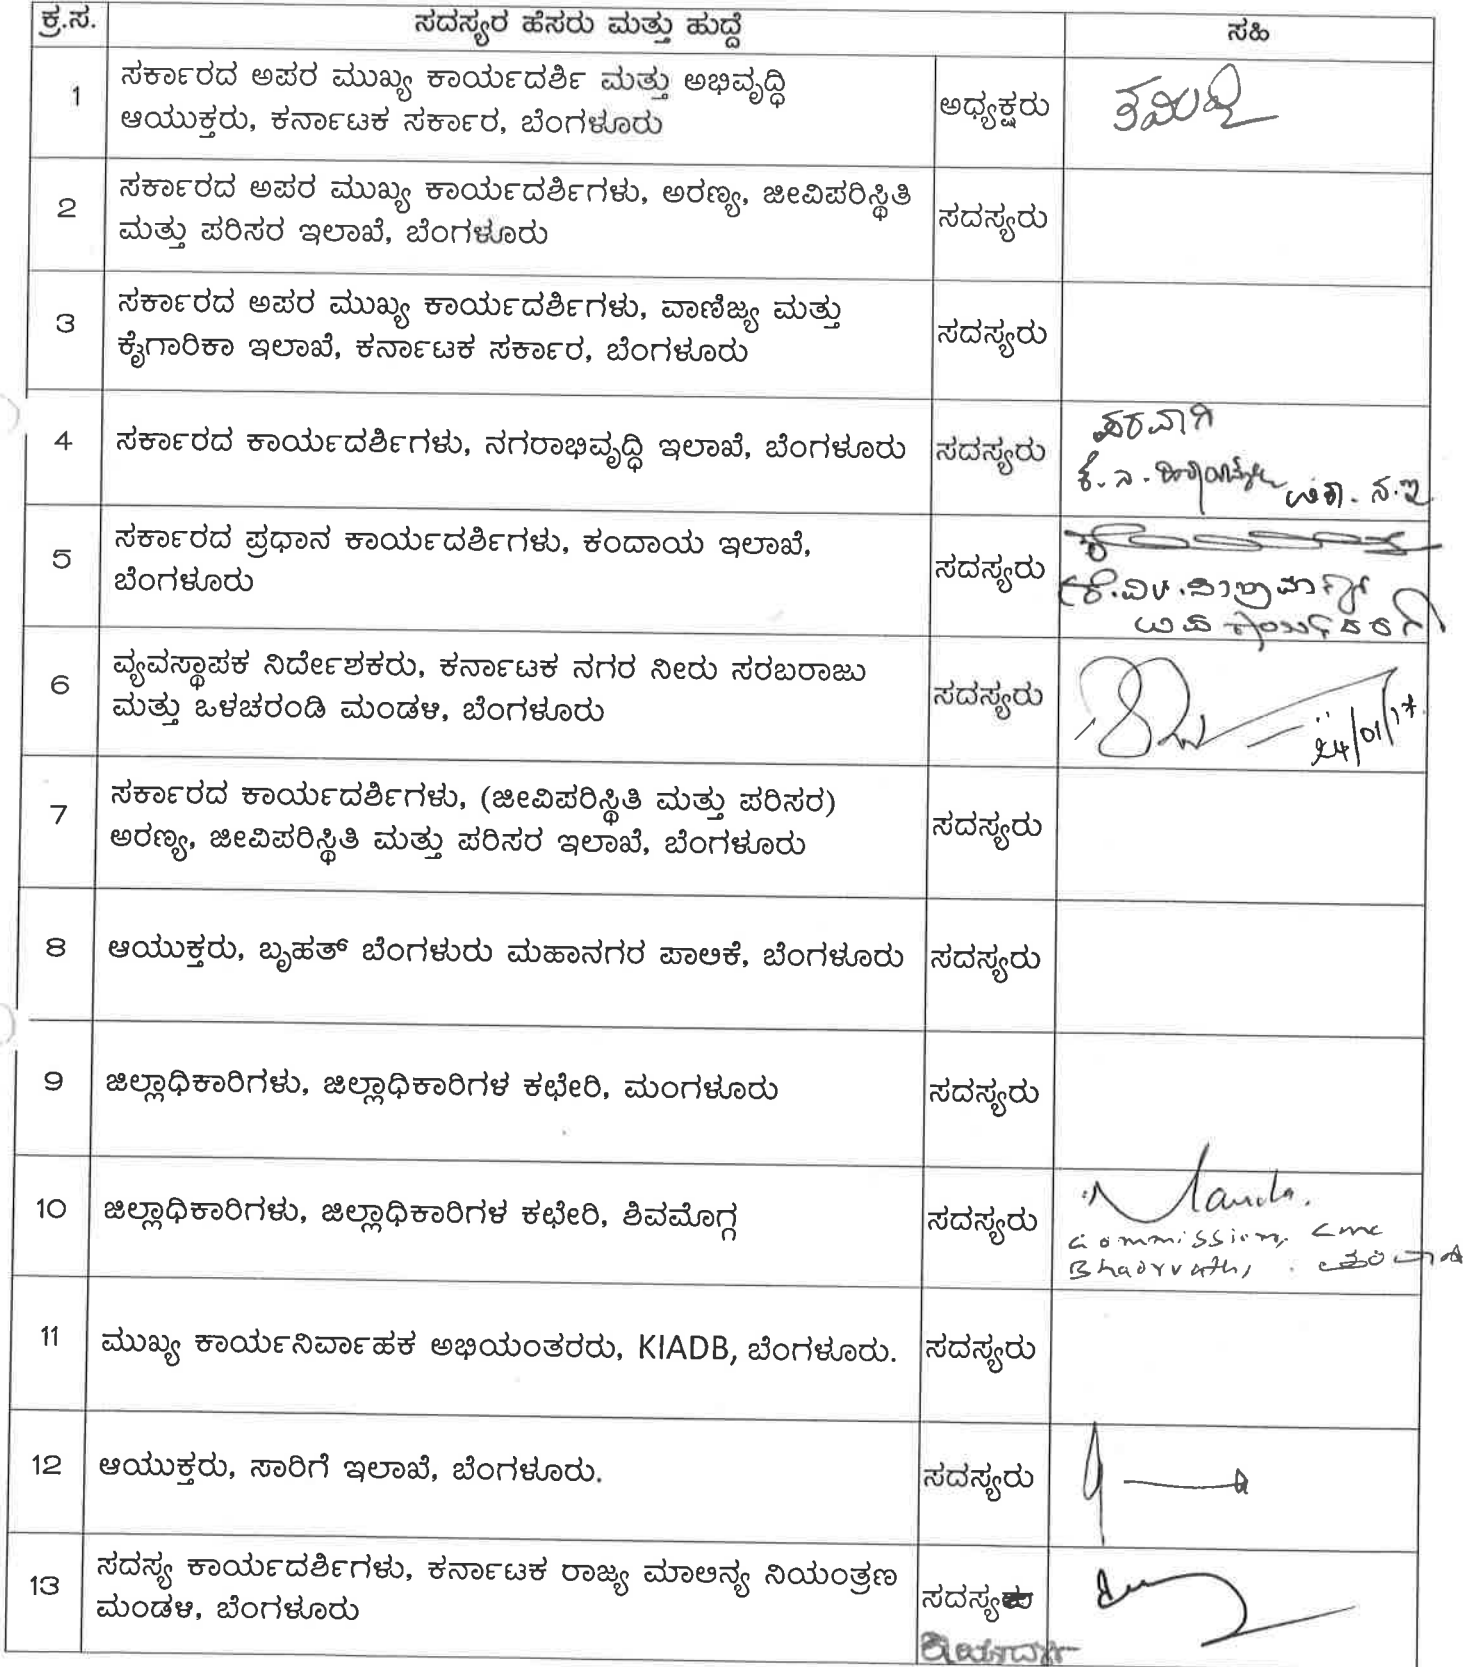 ಕ್ರ.ಸ. ಸದಸ್ಯರ ಹೆಸರು ಮತ್ತು ಹುದ್ದೆ ಸಹಿ
1 ಸರ್ಕಾರದ ಅಪರ ಮುಖ್ಯ ಕಾರ್ಯದರ್ಶಿ ಮತ್ತು ಅಭಿವೃದ್ಧಿ
ಆಯುಕ್ತರು, ಕರ್ನಾಟಕ ಸರ್ಕಾರ, ಬೆಂಗಳೂರು ಅಧ್ಯಕ್ಷರು
2 ಸರ್ಕಾರದ ಅಪರ ಮುಖ್ಯ ಕಾರ್ಯದರ್ಶಿಗಳು, ಅರಣ್ಯ, ಜೀವಿಪರಿಸ್ಥಿತಿ
ಮತ್ತು ಪರಿಸರ ಇಲಾಖೆ, ಬೆಂಗಳೂರು ಸದಸ್ಯರು
3 ಸರ್ಕಾರದ ಅಪರ ಮುಖ್ಯ ಕಾರ್ಯದರ್ಶಿಗಳು, ವಾಣಿಜ್ಯ ಮತ್ತು
ಕೈಗಾರಿಕಾ ಇಲಾಖೆ, ಕರ್ನಾಟಕ ಸರ್ಕಾರ, ಬೆಂಗಳೂರು ಸದಸ್ಯರು
4 ಸರ್ಕಾರದ ಕಾರ್ಯದರ್ಶಿಗಳು, ನಗರಾಭಿವೃದ್ಧಿ ಇಲಾಖೆ, ಬೆಂಗಳೂರು ಸದಸ್ಯರು
ಪರವಾಗಿ
5 ಸರ್ಕಾರದ ಪ್ರಧಾನ ಕಾರ್ಯದರ್ಶಿಗಳು, ಕಂದಾಯ ಇಲಾಖೆ,
ಬೆಂಗಳೂರು ಸದಸ್ಯರು
6 ವ್ಯವಸ್ಥಾಪಕ ನಿರ್ದೇಶಕರು, ಕರ್ನಾಟಕ ನಗರ ನೀರು ಸರಬರಾಜು
ಮತ್ತು ಒಳಚರಂಡಿ ಮಂಡಳಿ, ಬೆಂಗಳೂರು ಸದಸ್ಯರು
24/01/17.
7 ಸರ್ಕಾರದ ಕಾರ್ಯದರ್ಶಿಗಳು, (ಜೀವಿಪರಿಸ್ಥಿತಿ ಮತ್ತು ಪರಿಸರ)
ಅರಣ್ಯ, ಜೀವಿಪರಿಸ್ಥಿತಿ ಮತ್ತು ಪರಿಸರ ಇಲಾಖೆ, ಬೆಂಗಳೂರು ಸದಸ್ಯರು
8 ಆಯುಕ್ತರು, ಬೃಹತ್ ಬೆಂಗಳುರು ಮಹಾನಗರ ಪಾಲಿಕೆ, ಬೆಂಗಳೂರು ಸದಸ್ಯರು
9 ಜಿಲ್ಲಾಧಿಕಾರಿಗಳು, ಜಿಲ್ಲಾಧಿಕಾರಿಗಳ ಕಛೇರಿ, ಮಂಗಳೂರು ಸದಸ್ಯರು
10 ಜಿಲ್ಲಾಧಿಕಾರಿಗಳು, ಜಿಲ್ಲಾಧಿಕಾರಿಗಳ ಕಛೇರಿ, ಶಿವಮೊಗ್ಗ ಸದಸ್ಯರು
11 ಮುಖ್ಯ ಕಾರ್ಯನಿರ್ವಾಹಕ ಅಭಿಯಂತರರು, KIADB, ಬೆಂಗಳೂರು. ಸದಸ್ಯರು
12 ಆಯುಕ್ತರು, ಸಾರಿಗೆ ಇಲಾಖೆ, ಬೆಂಗಳೂರು. ಸದಸ್ಯರು
13 ಸದಸ್ಯ ಕಾರ್ಯದರ್ಶಿಗಳು, ಕರ್ನಾಟಕ ರಾಜ್ಯ ಮಾಲಿನ್ಯ ನಿಯಂತ್ರಣ
ಮಂಡಳಿ, ಬೆಂಗಳೂರು ಸದಸ್ಯ